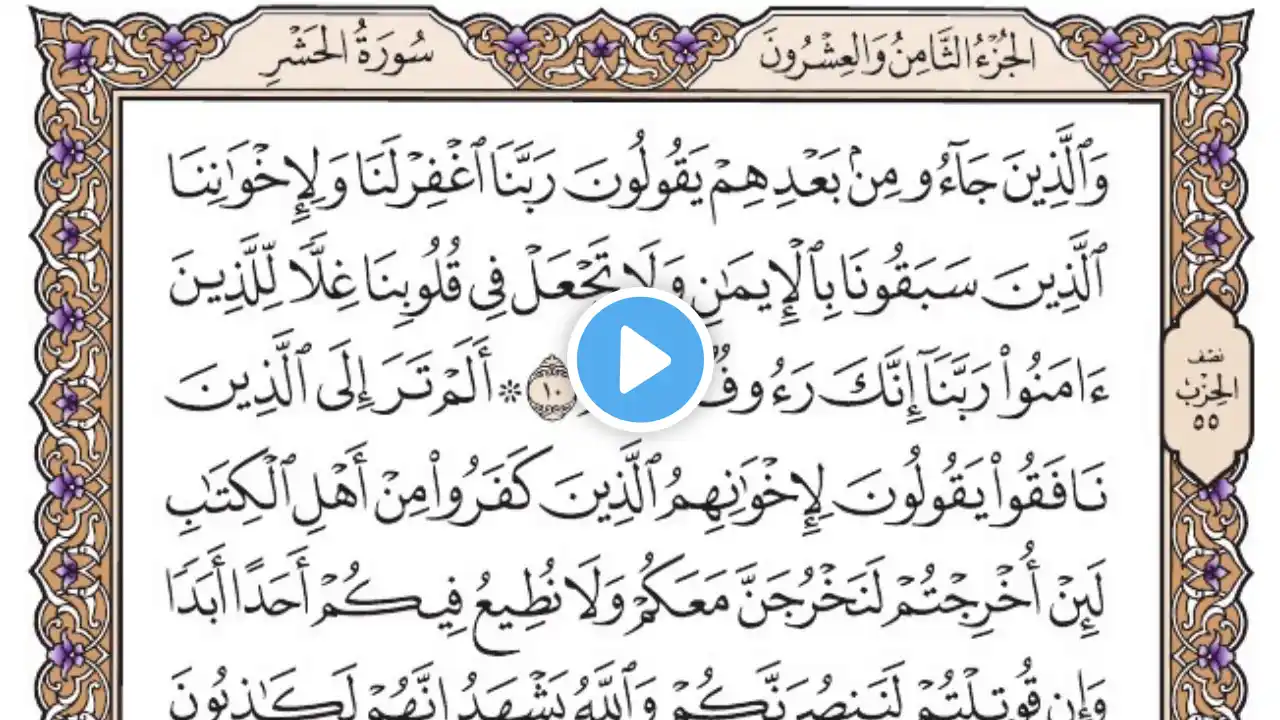 الجُزْءُ الثَّامِنُ وَالعِشْرُونَ
سُورَةُ الحَشْرِ
وَٱلَّذِينَ جَآءُو مِنۢ بَعْدِهِمْ يَقُولُونَ رَبَّنَا ٱغْفِرْ لَنَا وَلِإِخْوَٰنِنَا
ٱلَّذِينَ سَبَقُونَا بِٱلْإِيمَٰنِ وَلَا تَجْعَلْ فِى قُلُوبِنَا غِلًّا لِّلَّذِينَ
ءَامَنُوا۟ رَبَّنَآ إِنَّكَ رَءُوفٌ ١٠ ۞ أَلَمْ تَرَ إِلَى ٱلَّذِينَ
نَافَقُوا۟ يَقُولُونَ لِإِخْوَٰنِهِمُ ٱلَّذِينَ كَفَرُوا۟ مِنْ أَهْلِ ٱلْكِتَٰبِ
لَئِنْ أُخْرِجْتُمْ لَنَخْرُجَنَّ مَعَكُمْ وَلَا نُطِيعُ فِيكُمْ أَحَدًا أَبَدًا
وَإِن قُوتِلْتُمْ لَنَنصُرَنَّكُمْ وَٱللَّهُ يَشْهَدُ إِنَّهُمْ لَكَٰذِبُونَ
نصف
الحِزْب
٥٥